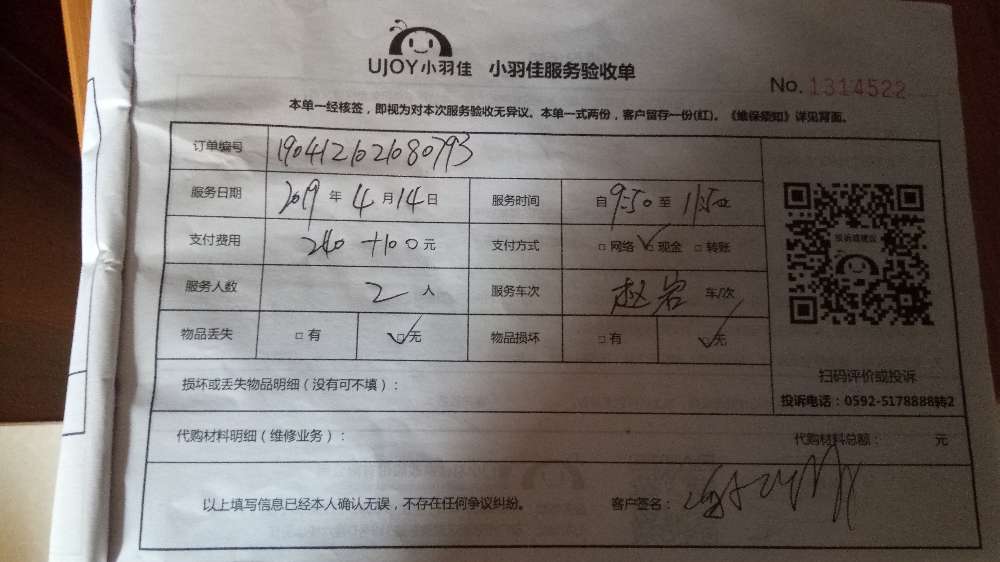 UJOY小羽佳 小羽佳服务验收单
No. 1314522
本单一经核签，即视为对本次服务验收无异议。本单一式两份，客户留存一份(红)。《维保须知》详见背面。
订单编号 19041262680793
服务日期 2019 年 4 月 14 日 服务时间 自 9:50 至 11:50
支付费用 240+100 元 支付方式 □ 网络 ☑ 现金 □ 转账
服务人数 2 人 服务车次 赵岩 车/次
物品丢失 □ 有 ☑ 无 物品损坏 □ 有 ☑ 无
投诉或建议
扫码评价或投诉
投诉电话：0592-5178888转2
损坏或丢失物品明细（没有可不填）：
代购材料明细（维修业务）： 代购材料总额： 元
以上填写信息已经本人确认无误，不存在任何争议纠纷。 客户签名：